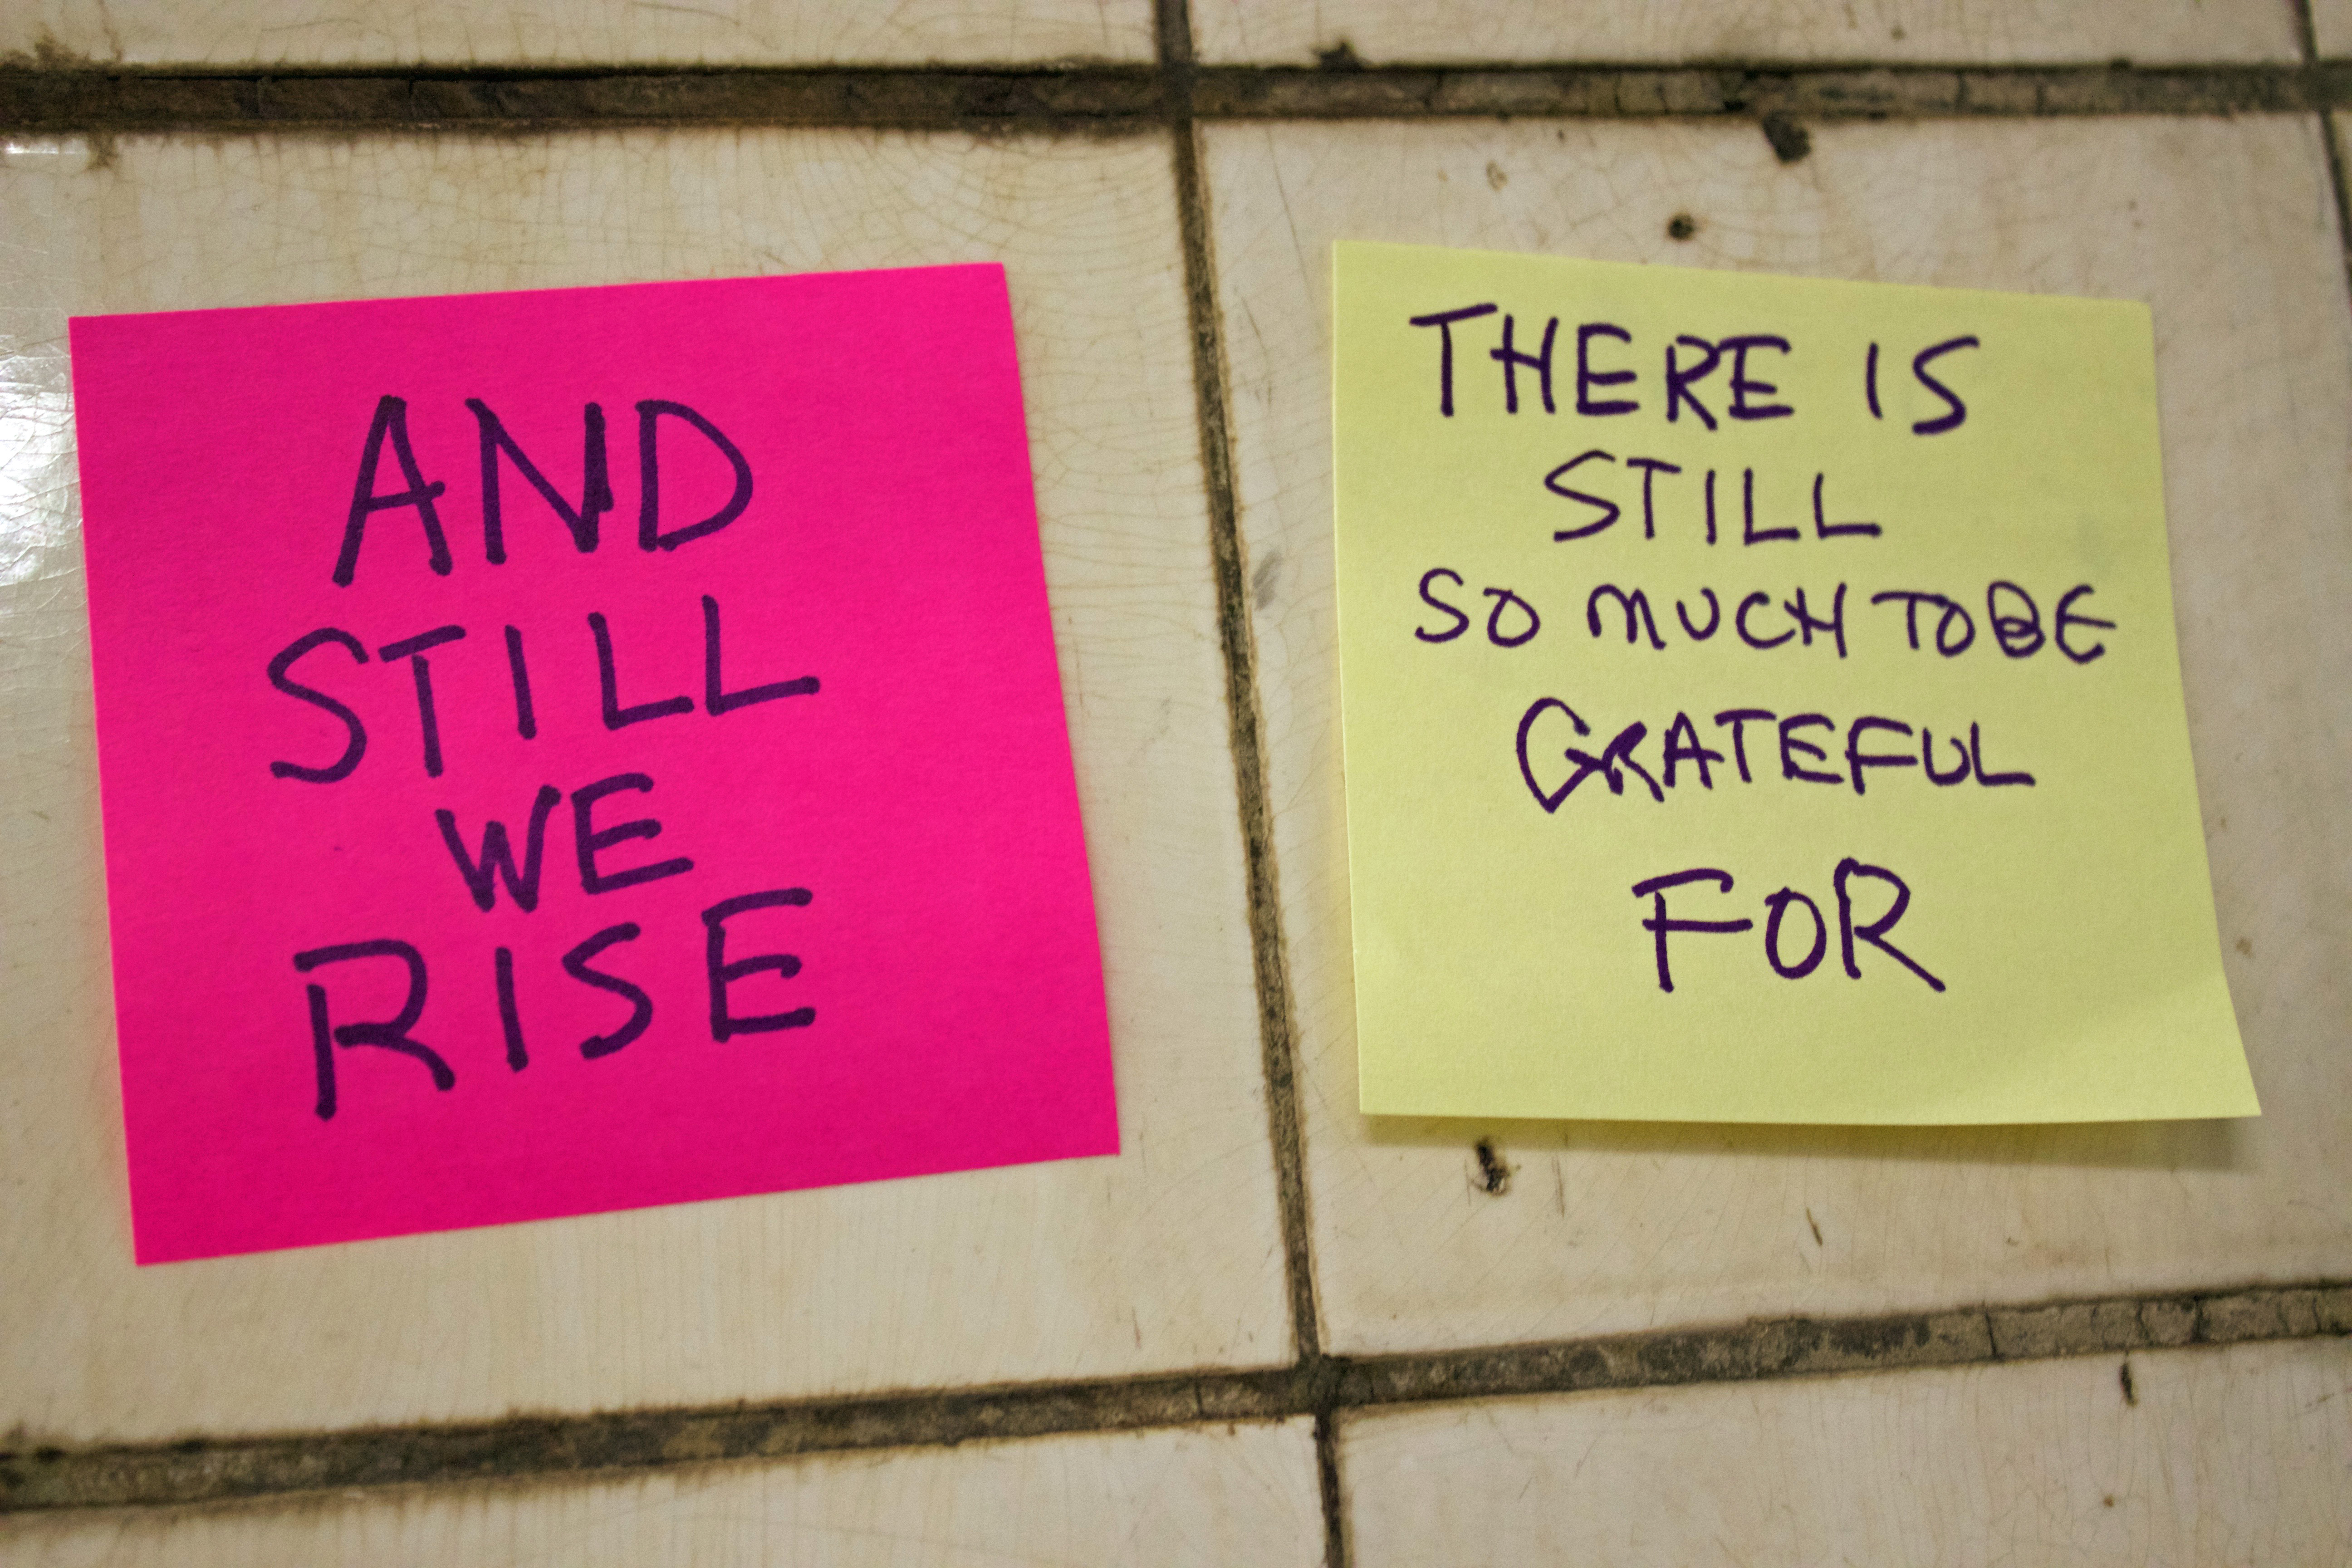 AND
STILL
WE
RISE
THERE IS
STILL
SO MUCH TO BE
GRATEFUL
FOR